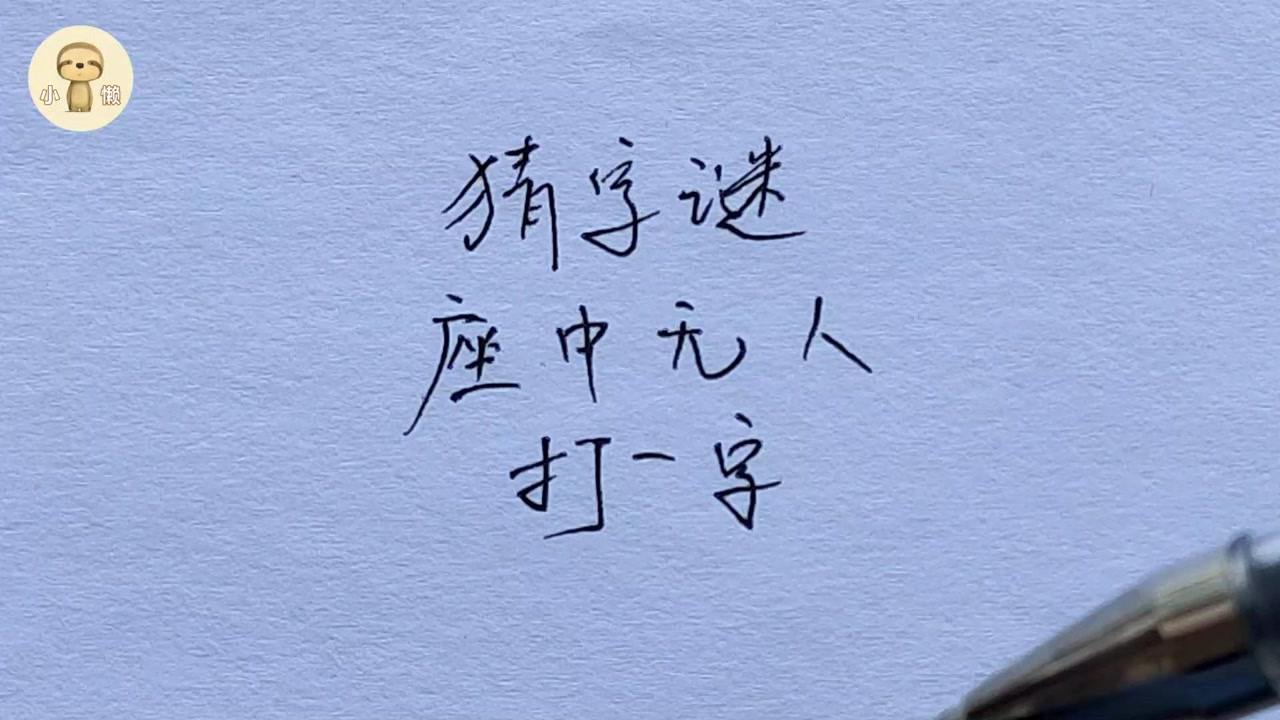 小懒
猜字谜
座中无人
打一字